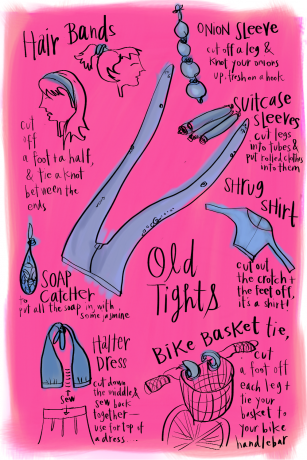 Hair Bands
cut
off
a foot & a half,
& tie a knot
between the
ends
Onion Sleeve
cut off a leg &
knot your onions
up. fresh on a hook.
Suitcase
Sleeves
cut legs
into tubes &
put rolled clothes
into them
Shrug
Shirt
cut out
the crotch &
the feet off,
it's a shirt!
Old
Tights
Soap
Catcher
to
put all the soap in, with
some jasmine
Halter
Dress
cut down
the middle &
sew back
together –
use for top of
a dress...
sew
Bike Basket tie,
cut
a foot off
each leg &
tie your
basket to
your bike
handlebar